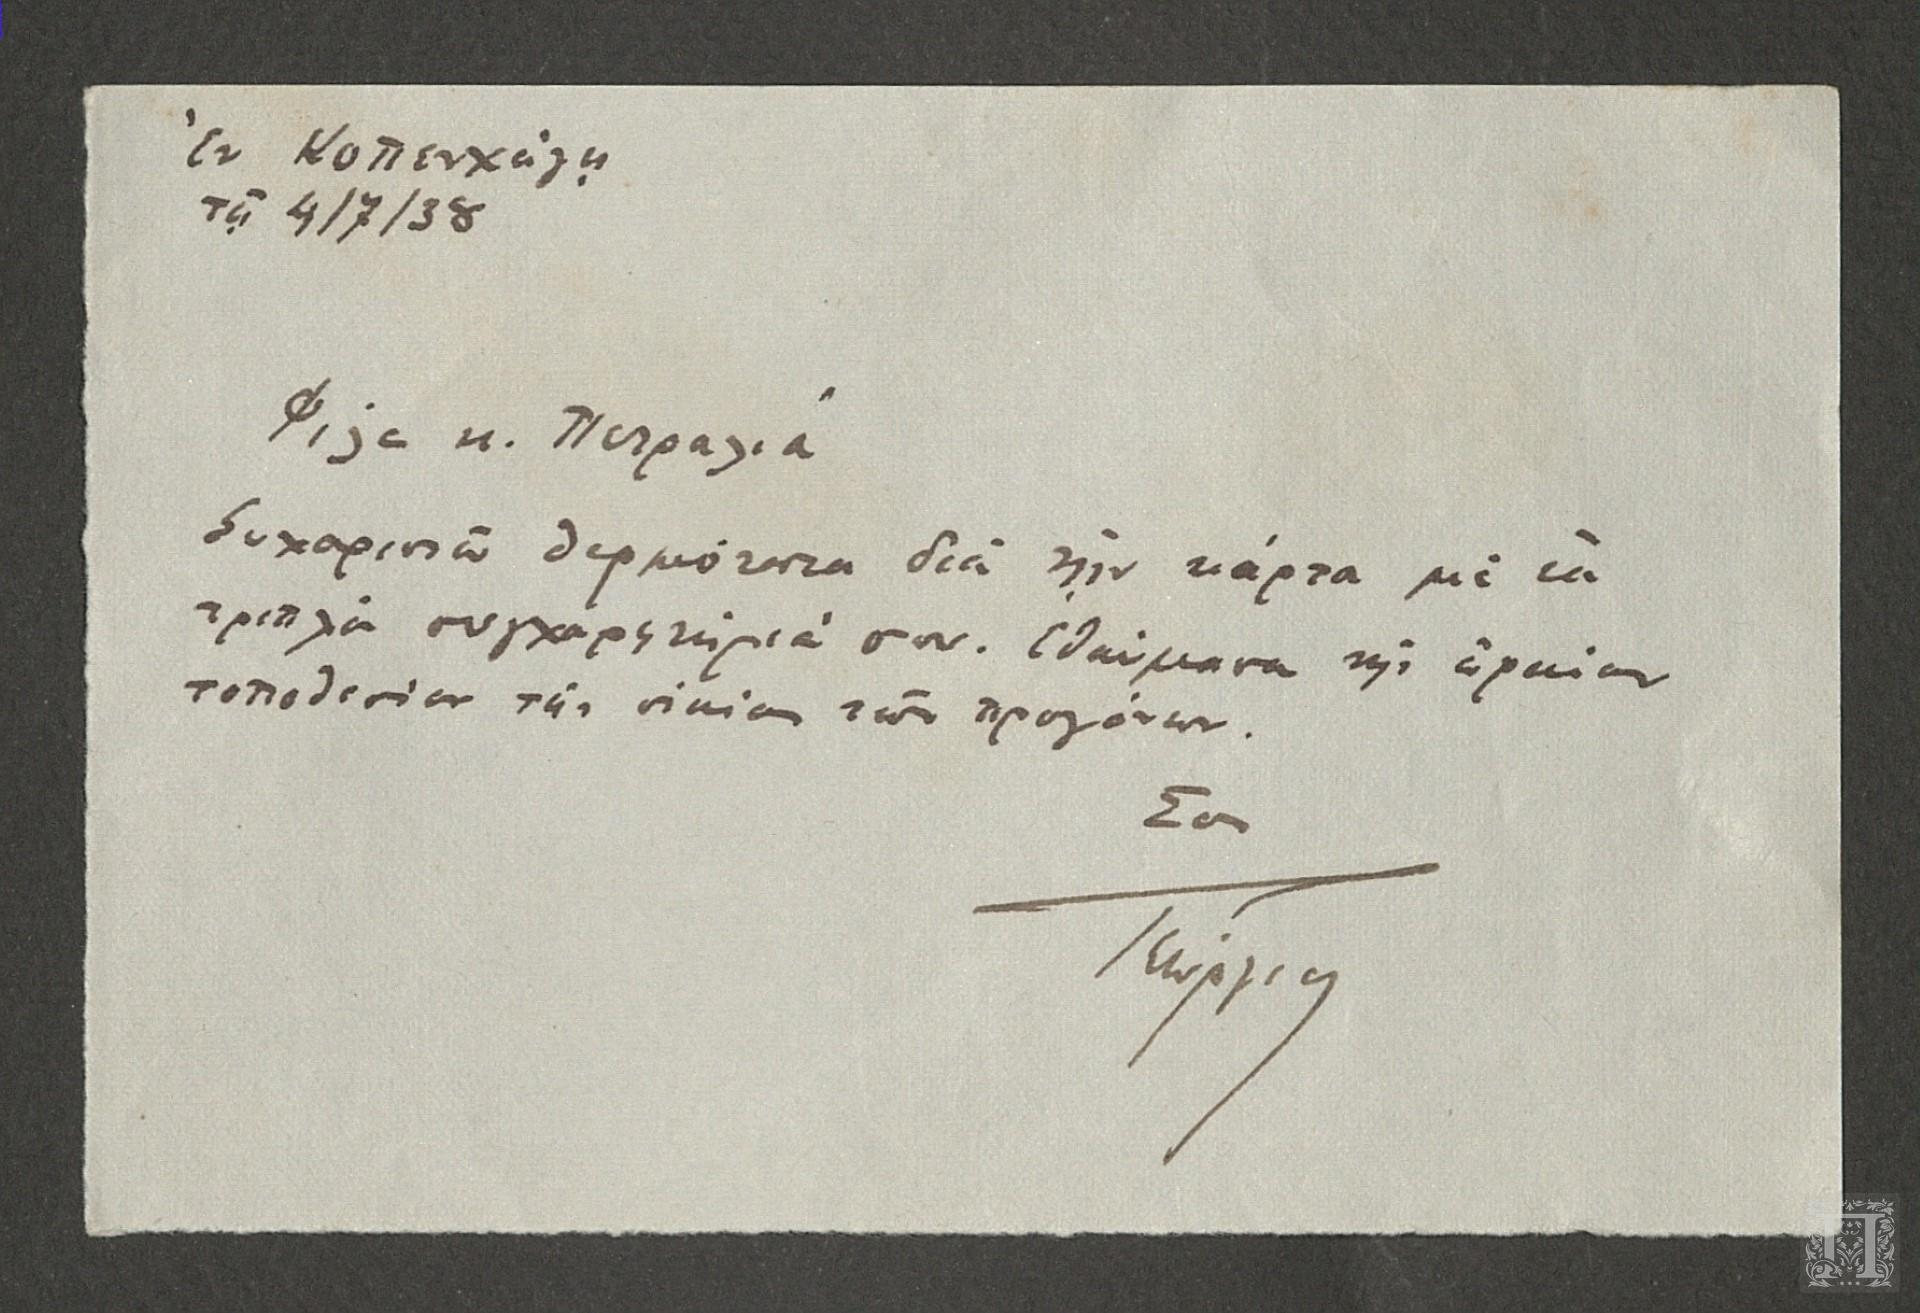 Ἐν Κοπενχάγῃ
τῇ 4/7/38
Φίλε κ. Πετραλιά
Εὐχαριστῶ θερμότατα διὰ τὴν κάρτα μὲ τὰ
τριπλᾶ συγχαρητήριά σου. Ἐθαύμασα τὴν ὡραίαν
τοποθεσίαν τῆς οἰκίας τῶν προγόνων.
Σας
Γεώργιος